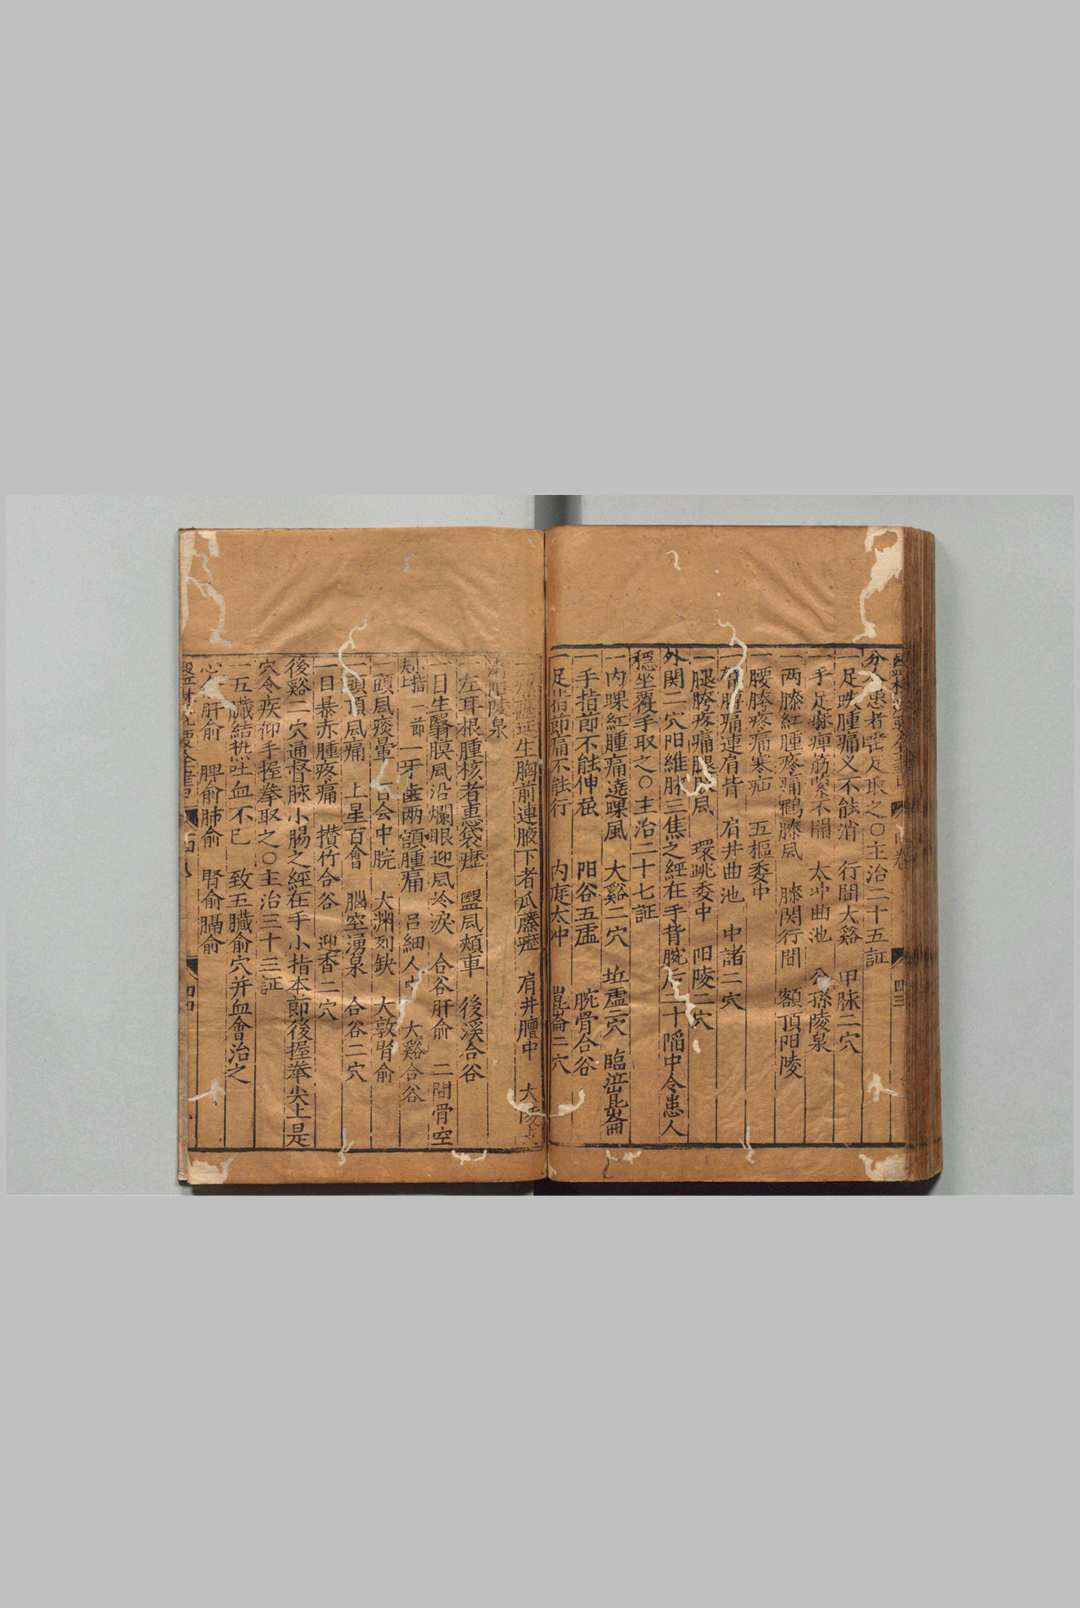 分令患者垂足取之○主治二十五証
足跌腫痛久不能消　行間大谿　甲脉二穴
手足麻痺筋緊不開　太冲曲池　陵泉
両膝紅腫疼痛鶴膝風　膝関行間　額頂阳陵
一腰膝疼痛寒疝　五樞委中
痛連肩背　肩井曲池　中諸二穴
腿胯疼痛　風　環跳委中　阳陵二穴
外関二穴阳維脉三焦之經在手背腕后二寸陷中令患人
穏坐覆手取之○主治二十七証
一内踝紅腫痛遶踝風　大谿二穴　坵虚二穴　臨泣昆崙
一手指節不能伸屈　阳谷五虚　腕骨合谷
足指節痛不能行　内庭太冲　崑崙二穴
生胸前連腋下者瓜藤癧　肩井膻中　大陵
阳陵泉
左耳根腫核者惠袋癧　翳風頬車　後溪合谷
目生翳膜風沿爛眼迎風冷淚　合谷肝俞　二間骨空
一牙齒両頷腫痛　呂細人中　大谿合谷
一頭風痰暈　百会中脘　大渊列缺　大敦腎俞
頭頂風痛　上星百會　腦空湧泉　合谷二穴
一目暴赤腫疼痛　攢竹合谷　迎香二穴
後谿二穴通督脉小腸之經在手小指本節後握拳尖上是
穴令疾仰手握拳取之○主治三十三証
一五臟結热吐血不已　致五臟俞穴并血會治之
心俞肝俞　脾俞肺俞　腎俞膈俞